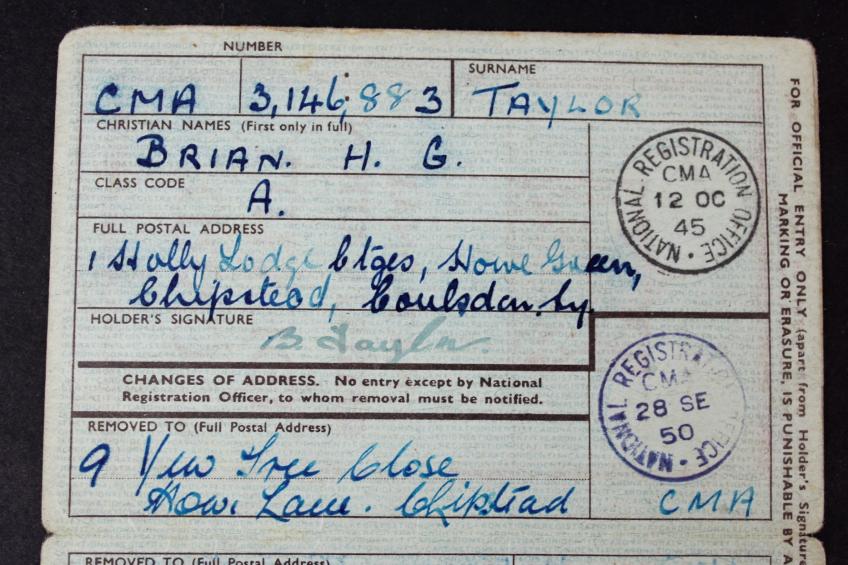 NUMBER
CMA 3,146,883
SURNAME
TAYLOR
CHRISTIAN NAMES (First only in full)
BRIAN. H. G.
CLASS CODE
A.
FULL POSTAL ADDRESS
1 Holly Lodge Ctges, Howe Green,
Chipstead, Coulsdon. Sy.
HOLDER'S SIGNATURE
B. Taylor.
CHANGES OF ADDRESS. No entry except by National
Registration Officer, to whom removal must be notified.
REMOVED TO (Full Postal Address)
9 Yew Tree Close
How Lane. Chipstead
CMA
NATIONAL REGISTRATION OFFICE
CMA
12 OC
45
NATIONAL REGISTRATION OFFICE
CMA
28 SE
50
FOR OFFICIAL ENTRY ONLY (apart from Holder's Signature
MARKING OR ERASURE, IS PUNISHABLE BY A
REMOVED TO (Full Postal Address)